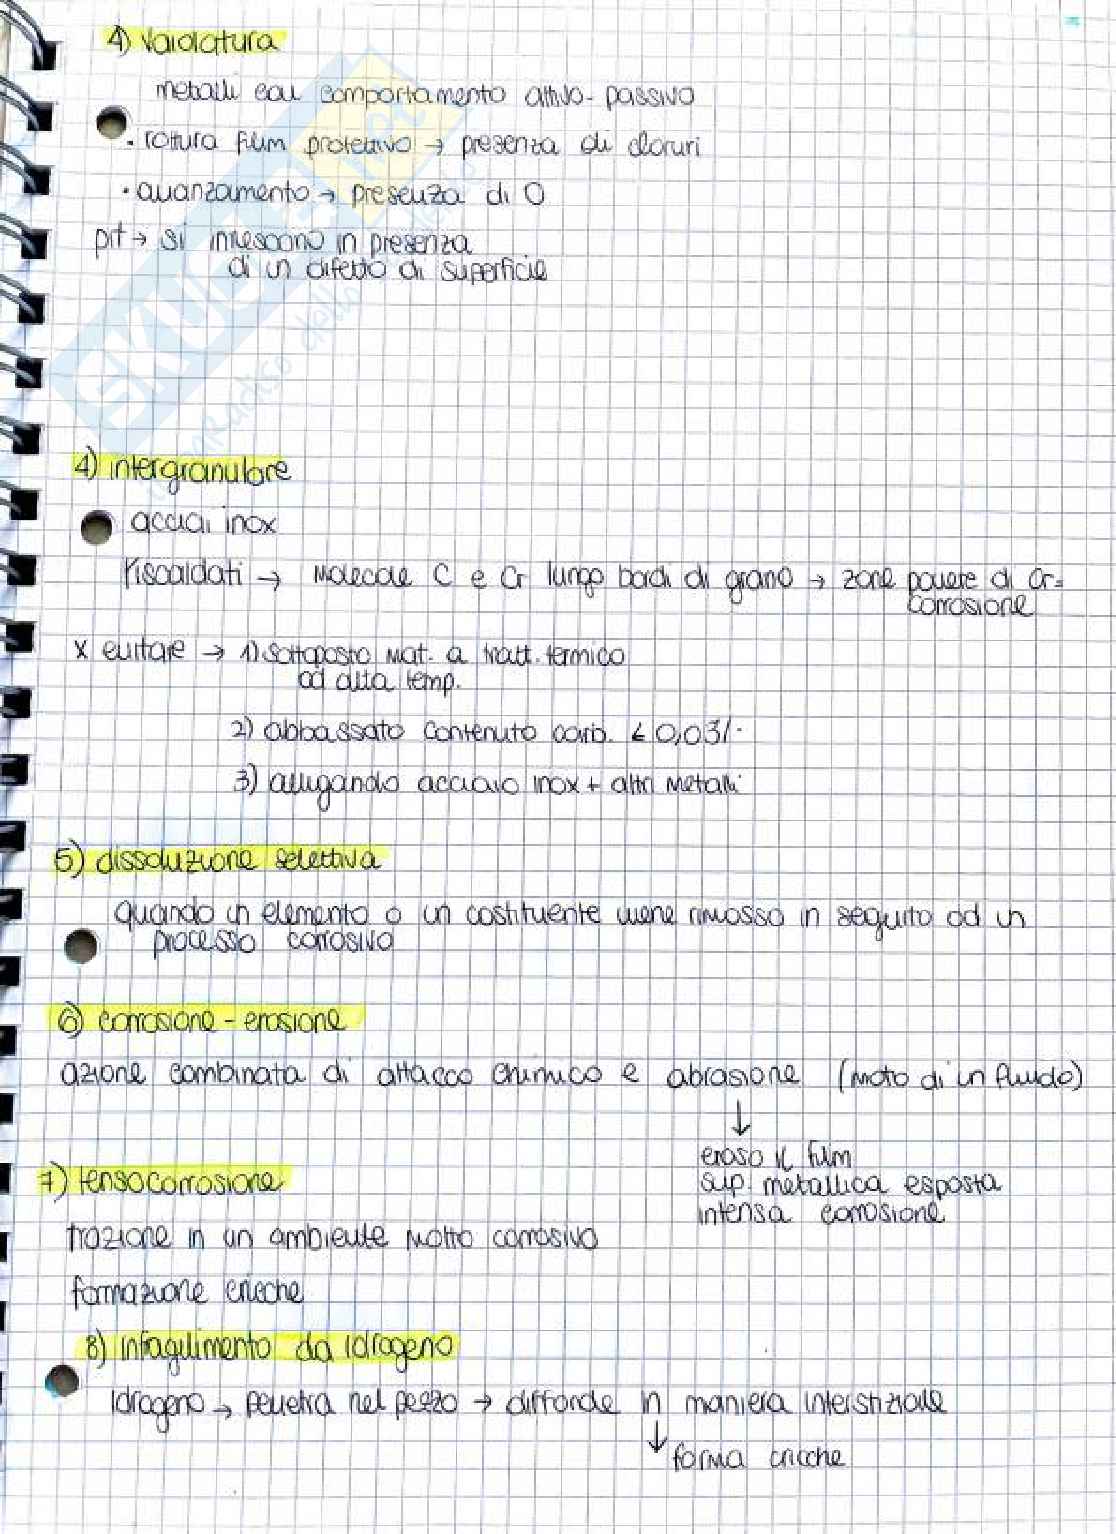 4) vaiolatura
metalli con comportamento attivo-passivo
• rottura film protettivo → presenza di cloruri
• avanzamento → presenza di O
pit → si innescano in presenza
di un difetto di superficie
4) intergranulare
acciai inox
riscaldati → molecole C e Cr lungo bordi di grano → zone povere di Cr =
corrosione
x evitare → 1) sottoposto mat. a tratt. termico
ad alta temp.
2) abbassato contenuto carb. < 0,03%
3) allegando acciaio inox + altri metalli
5) dissoluzione selettiva
quando un elemento o un costituente viene rimosso in seguito ad un
processo corrosivo
6) corrosione - erosione
azione combinata di attacco chimico e abrasione (moto di un fluido)
↓
eroso il film
sup. metallica esposta
intensa corrosione
7) tensocorrosione
trazione in un ambiente molto corrosivo
formazione cricche
8) infragilimento da idrogeno
Idrogeno → penetra nel pezzo → diffonde in maniera interstiziale
↓ forma cricche
SKUOLA.net
il paradiso dello